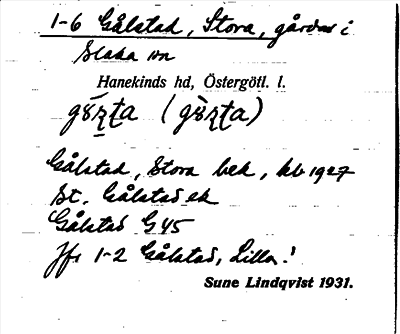 1-6 Gålstad, Stora, gårdar i
Slaka sn
Hanekinds hd, Östergötl. l.
Gålstad, Stora bek, kb 1927
St. Gålstad ek
Gålstad G 45
Jfr 1-2 Gålstad, Lilla!
Sune Lindqvist 1931.